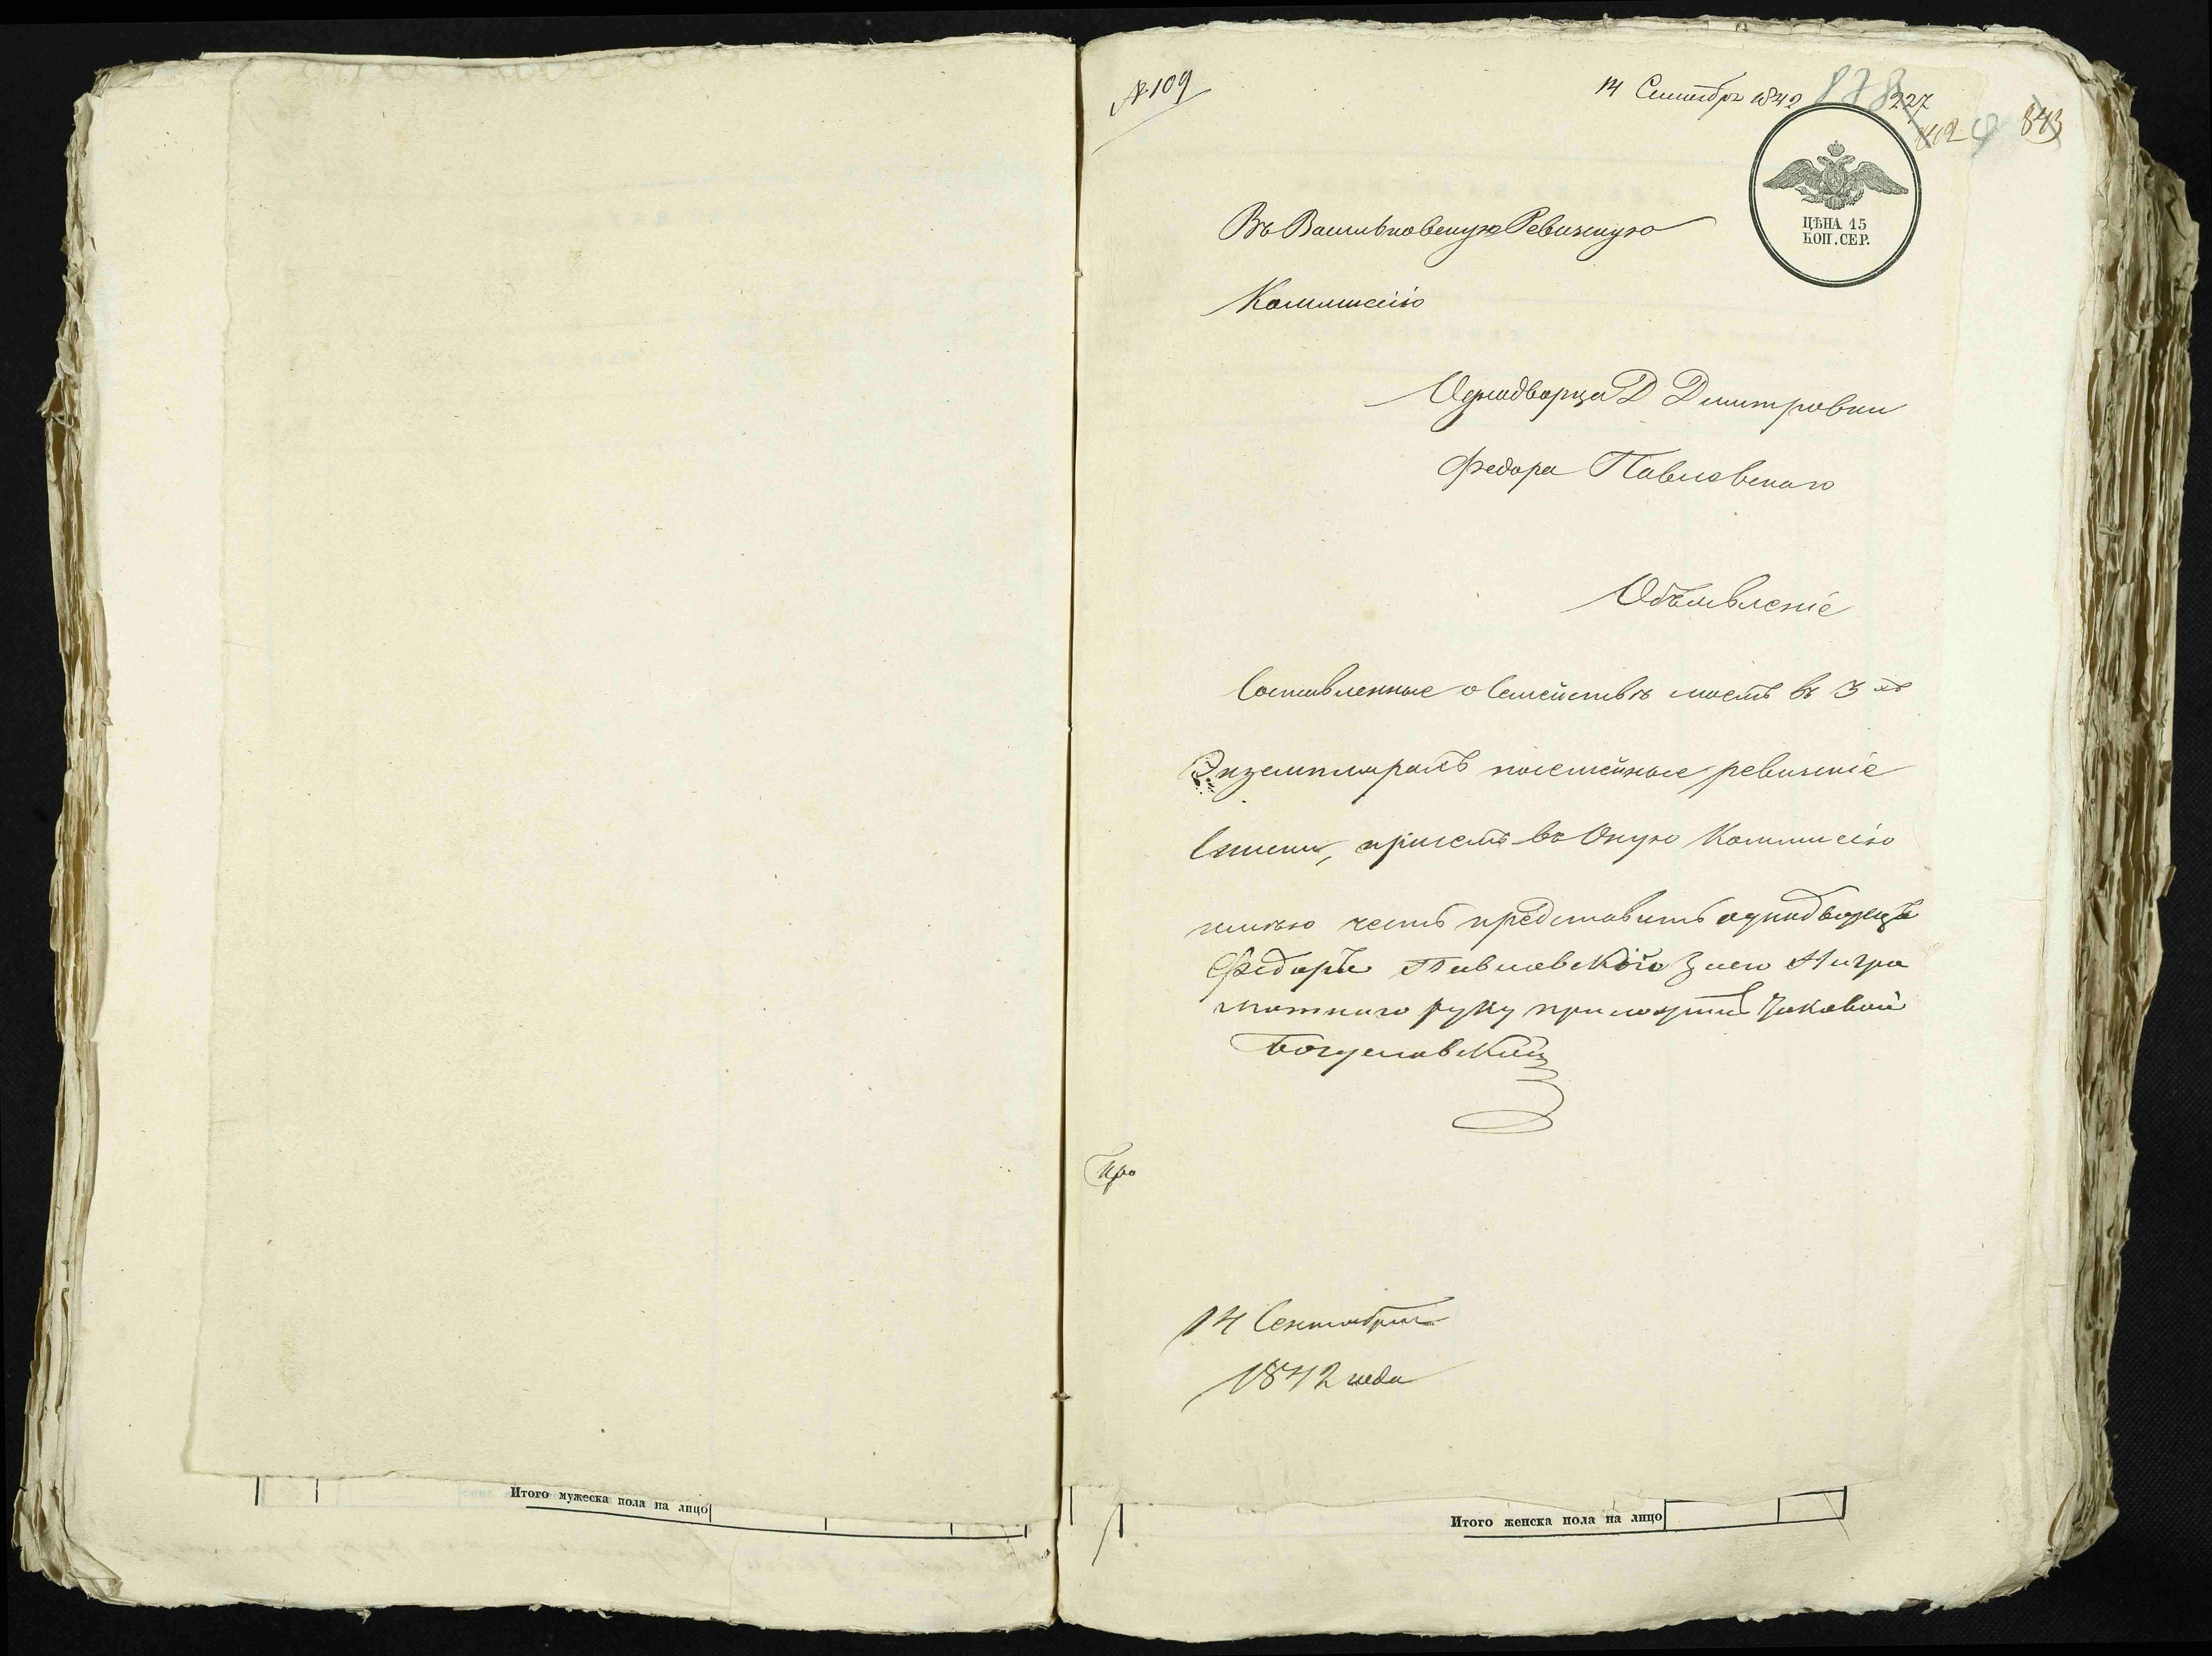 № 109
14 Сентября 1842
878
227
842
843
ЦѢНА 15
КОП. СЕР.
Въ Васильковскую Ревизскую
Коммисію
Однодворца Д Дмитровки
Федора Павловскаго
Объявленіе
Составленные о Семействѣ моемъ въ 3 хъ
Экземплярахъ посемейные ревизскіе
Списки, при семъ въ Оную Коммисію
имѣю честь представить однодворецъ
Федоръ Павловскій а за него Негра
мотнаго руку приложилъ Яковъ
Богуславскій
14 Сентября
1842 года
Итого мужеска пола на лицо
Итого женска пола на лицо